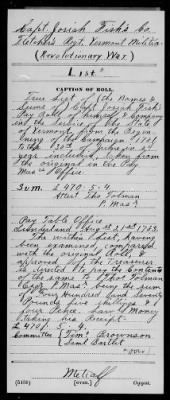 Capt. Josiah Fish's Co.
Fletcher's Regt. Vermont Militia
(Revolutionary War.)
List
CAPTION OF ROLL.
True List of (the Names &
Sums of Capt Josiah Fish's
Pay Roll, Himself & Company
in the Service of the State
of Vermont, from the Begin-
ning of the Campaign 1781
to the 30th of
year included, taken from
the original in the Pay
Mas'rs Office
Sum £470-5-4
Attest Tho Tolman
P. Mas'r
Pay Table Office
Sunderland Augst 31st 1782.
The within List, having
been examined, compared
with the original Rolls &
approved of, the Treasurer
is directed to pay the Contents
of the same to Thos Tolman
Esqr P. Mas'r being the sum
of Four Hundred and Seventy
Pounds five shillings &
four Pence, Law'l Money
taking his Receipt.
£470.. 5.. 4
Committee Timy Brownson
Saml Bartlet
Metcalf
Copyist.